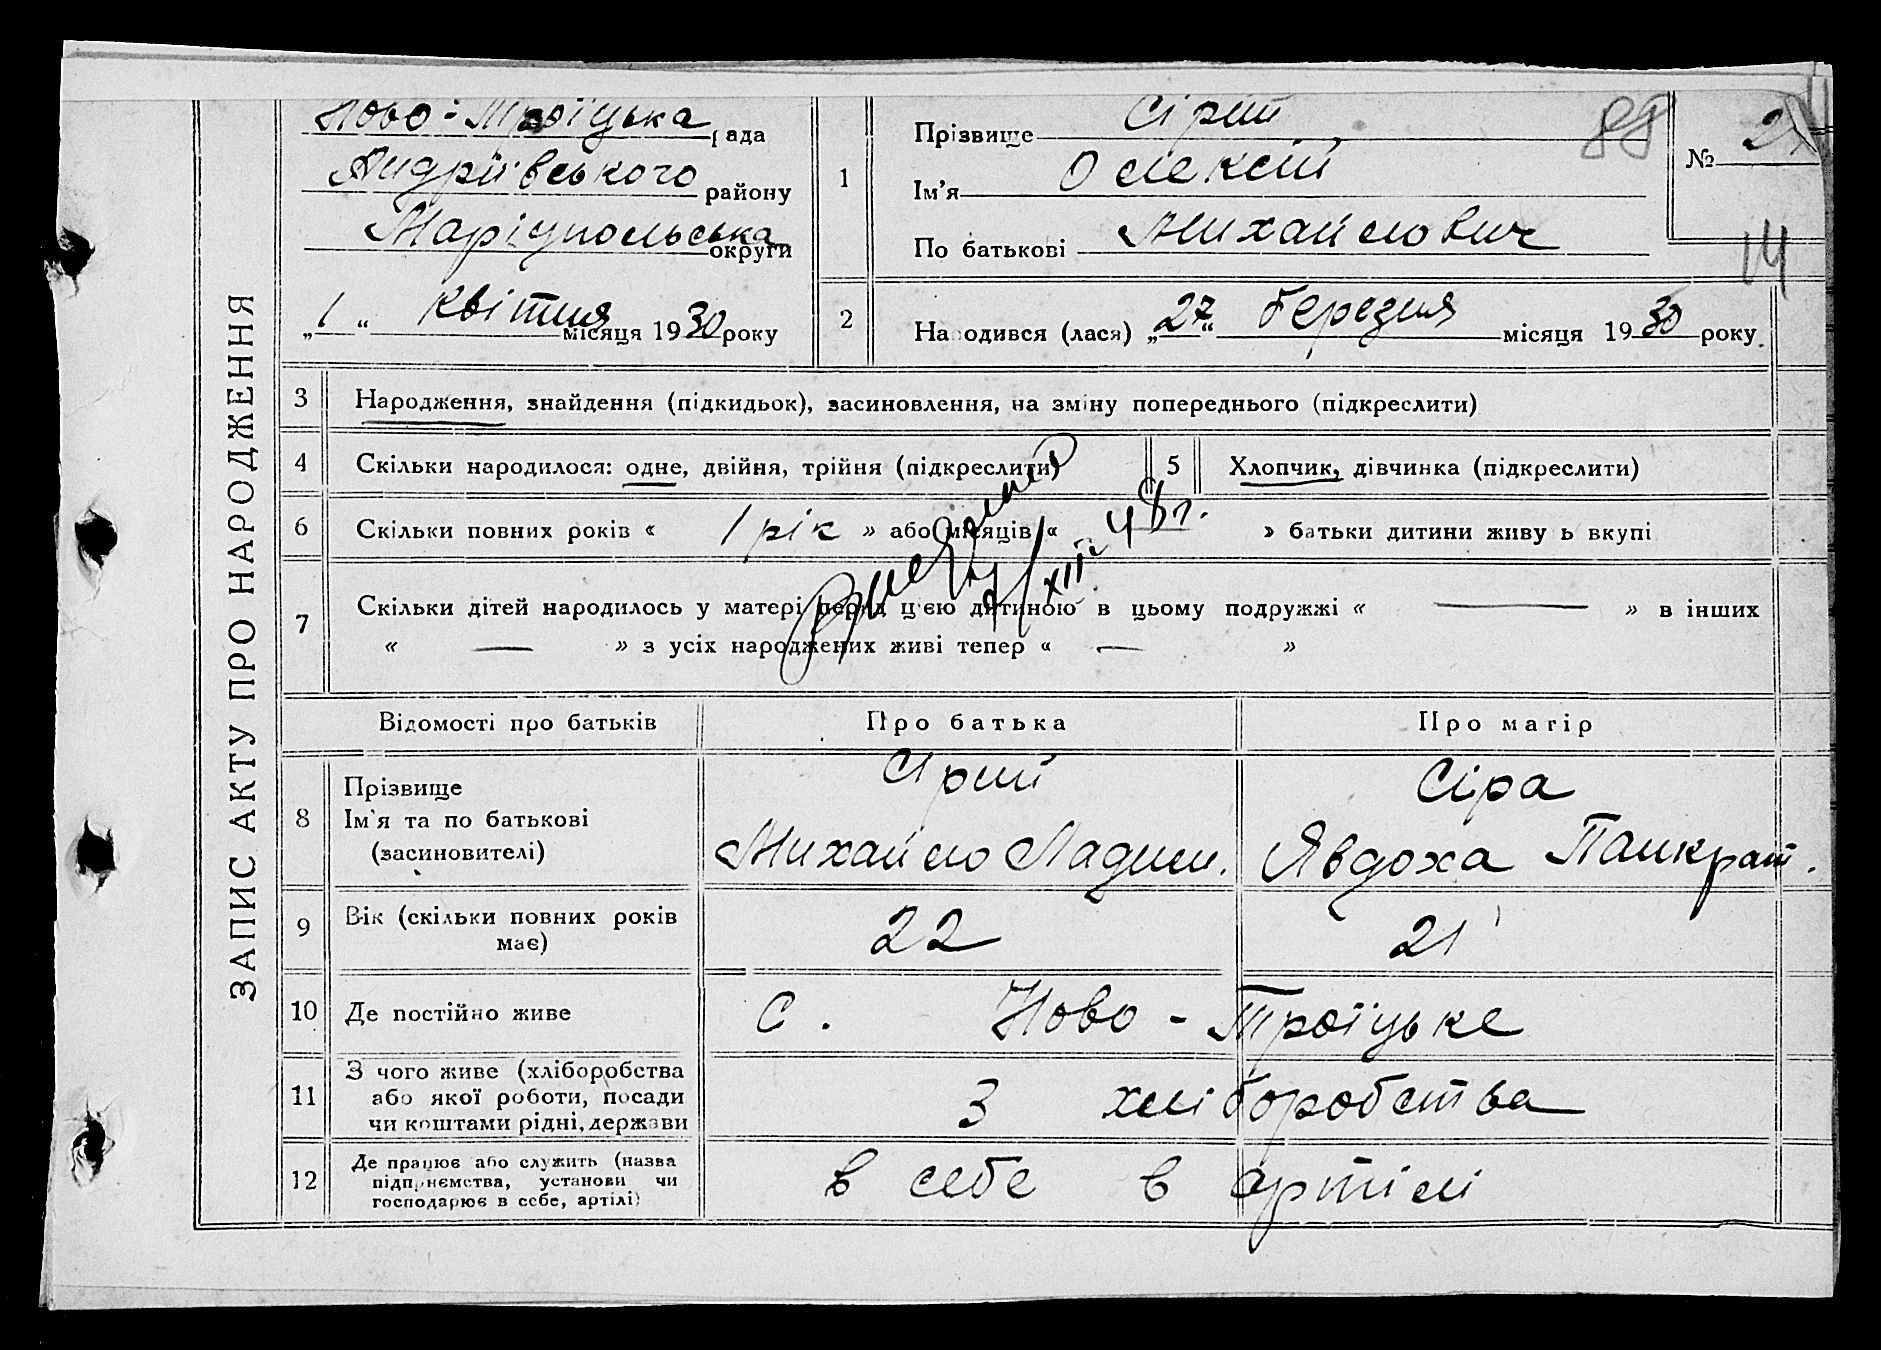 ЗАПИС АКТУ ПРО НАРОДЖЕННЯ
Ново-Троїцька рада
Андріївського району
Маріупольська округи
„1“ квітня місяця 1930 року
1
Прізвище Сірий
Ім'я Олексій
По батькові Михайлович
88
№ 2
14
2
Народився (лася) „27“ березня місяця 1930 року.
3 Народження, знайдення (підкидьок), засиновлення, на зміну попереднього (підкреслити)
4 Скільки народилося: одне, двійня, трійня (підкреслити)
5 Хлопчик, дівчинка (підкреслити)
6 Скільки повних років « 1 рік » або місяців « » батьки дитини живуть вкупі
XII 48 г.
7 Скільки дітей народилось у матері перед цією дитиною в цьому подружжі « — » в інших
« — » з усіх народжених живі тепер « — »
Відомості про батьків Про батька Про матір
8 Прізвище
Ім'я та по батькові
(засиновителі)
Сірий
Михайло Ладим.
Сіра
Явдоха Панкрат.
9 Вік (скільки повних років
має)
22 21
10 Де постійно живе с. Ново-Троїцьке
11 З чого живе (хліборобства
або якої роботи, посади
чи коштами рідні, держави
З хліборобства
12 Де працює або служить (назва
підприємства, установи чи
господарює в себе, артілі)
в себе в артілі